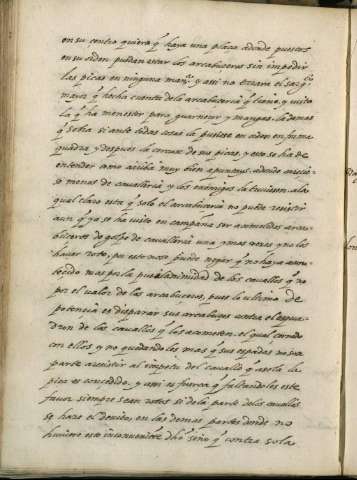 en su contra quiere q̃ haya una plaça adonde puestos
en su orden puedan estar los arcabuceros sin impedir
las picas en ninguna man.ª y assi no errara el sarg.to
mayor q̃ hecha cuenta de la arcabuceria q̃ tiene, y vista
la q̃ ha menester para guarnecer y mangas la demas
q̃ sobra si ante todas cosas la pusiese en orden en forma
quadra, y despues la cercase de sus picas, y esto se ha de
entender como arriba muy bien apuntays adonde
menos de cavalleria y los enemigos la tuviesen a la
qual claro esta q̃ solo el arcabuceria no puede resistir
aun q̃ ya se ha visto en campaña ser acometidos arca-
buceros de golpe de cavalleria una y mas vezes y no los
haver roto, pues esto no se puede negar q̃ no haya acon-
tecido mas por la pusilanimidad de los cavallos q̃ no
por el valor de los arcabuceros, pues la ultima de
potencia es disparar sus arcabuzes contra el esqua-
dron de los cavallos q̃ los acometen. el qual cerrado
con ellos y no quedando les mas q̃ sus espadas no son
parte a resistir al impetu del cavallo q̃ a sola la
pica es concedido. y assi es fuerça q̃ faltandoles este
favor siempre sean rotos si de la parte de los cavallos
se haze el devito, en las demas partes donde no
huviere este inconveniente dho señor q̃ contra sola